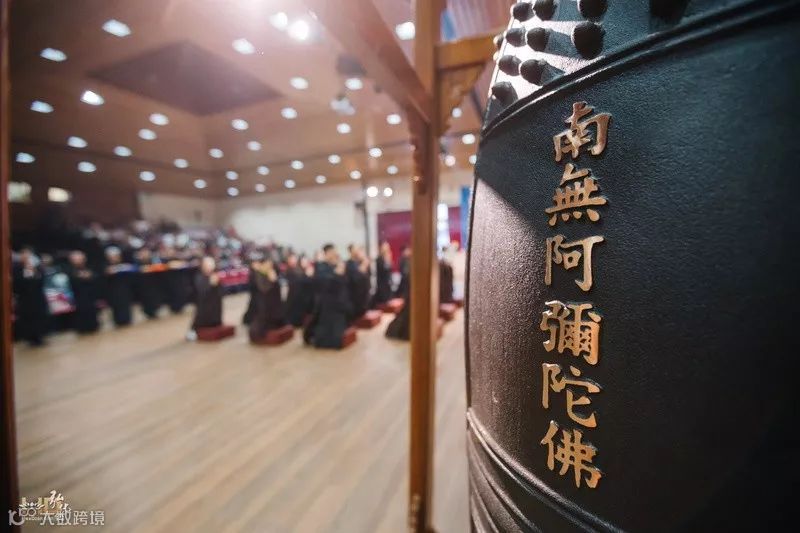 南無阿彌陀佛
大数跨境